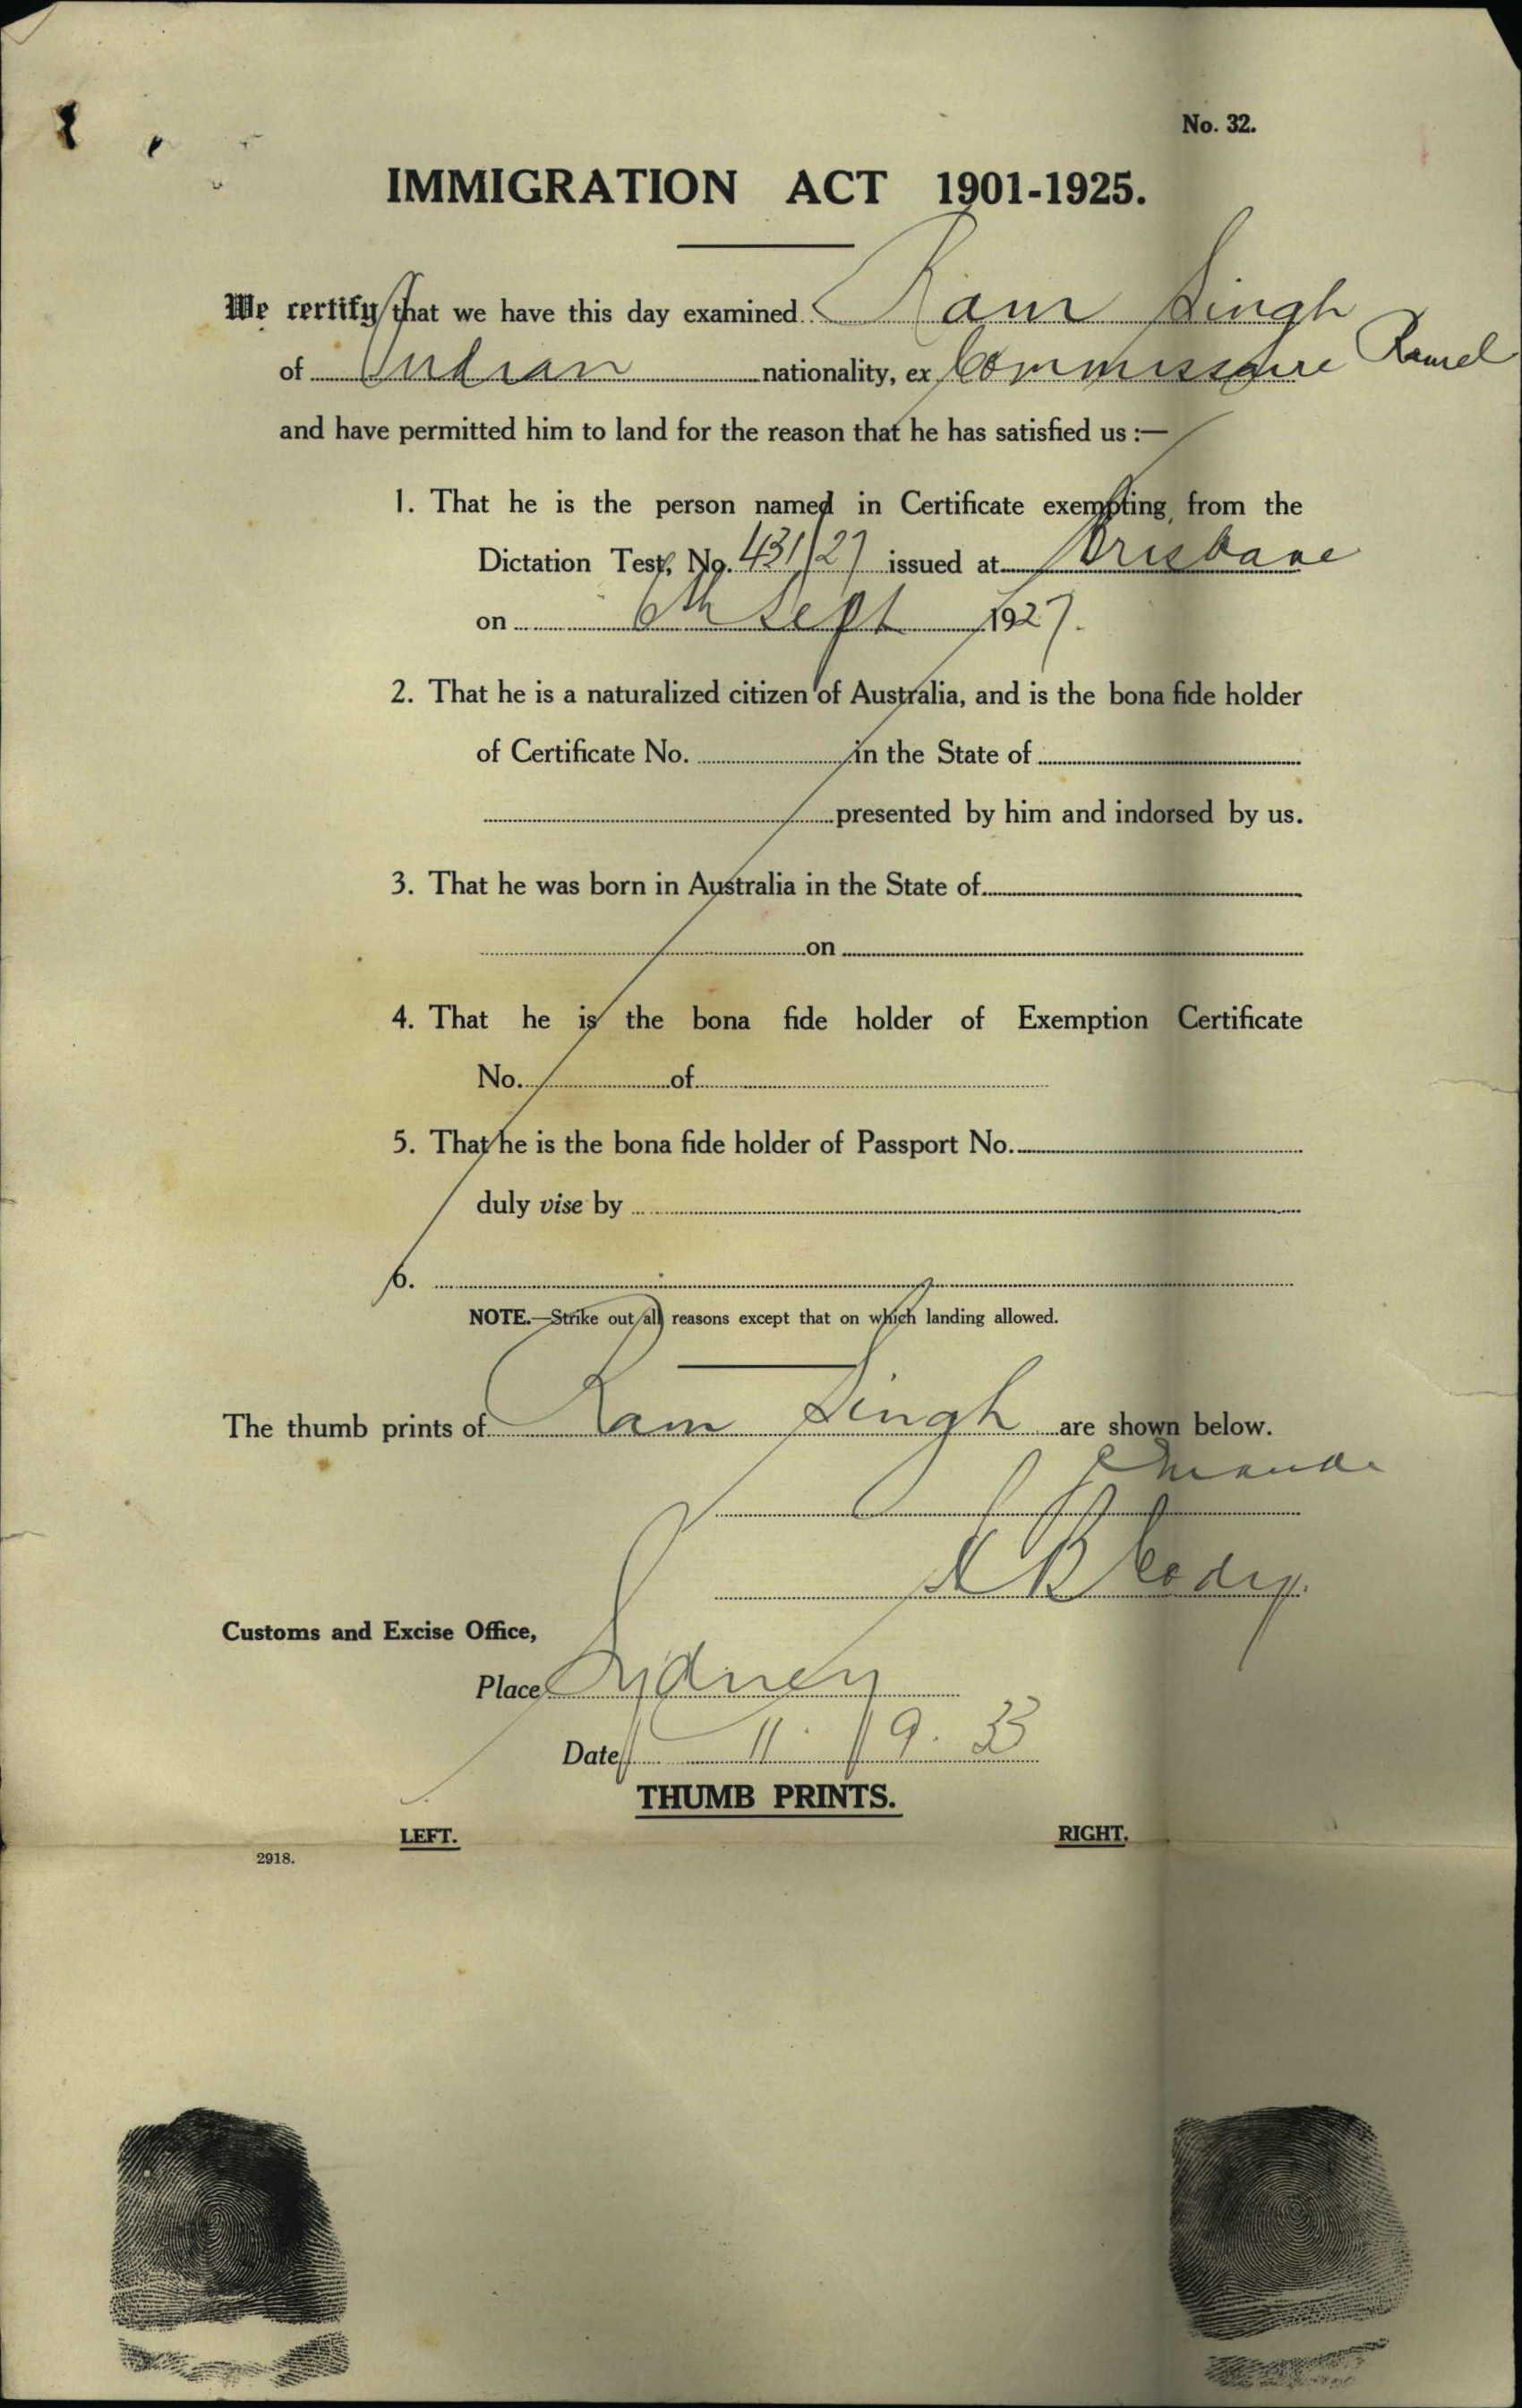 No. 32.
IMMIGRATION ACT 1901-1925.
We certify that we have this day examined Ram Singh
of Indian nationality, ex Commissaire Ramel
and have permitted him to land for the reason that he has satisfied us :—
1. That he is the person named in Certificate exempting from the
Dictation Test, No. 431/27 issued at Brisbane
on 6th Sept 1927.
2. That he is a naturalized citizen of Australia, and is the bona fide holder
of Certificate No. in the State of
presented by him and indorsed by us.
3. That he was born in Australia in the State of
on
4. That he is the bona fide holder of Exemption Certificate
No. of
5. That he is the bona fide holder of Passport No.
duly vise by
6.
NOTE.—Strike out all reasons except that on which landing allowed.
The thumb prints of Ram Singh are shown below.
Cody.
Customs and Excise Office,
Place Sydney
Date 11. 9. 33
THUMB PRINTS.
LEFT. RIGHT.
2918.